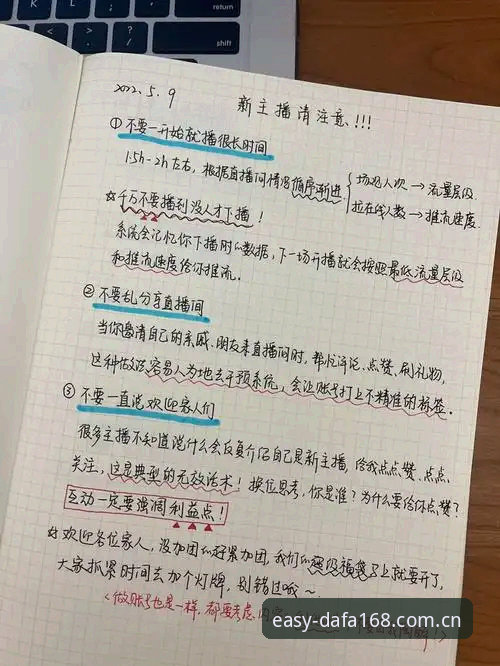 shift
ctrl
2022.5.9
新主播请注意、!!!
① 不要一开始就播很长时间
1.5h-2h左右，根据直播间情况循序渐进
场观人次 → 流量层级
拉在线人数 → 推流速度
☆ 千万不要播到没人才下播！
系统会记忆你下播时的数据，下一场开播就会按照最低流量层级
和推流速度给你推流。
② 不要乱分享直播间
当你邀请自己的亲戚、朋友来直播间时，帮忙评论、点赞、刷礼物，
这种做法容易人为地去干预系统，会让账号打上不精准的标签。
③ 不要一直说欢迎家人们
很多主播不知道说什么会反复介绍自己是新主播，给我点点赞、点点
关注，这是典型的无效话术！换位思考，你是谁？为什么要给你点赞？
互动一定要强调利益点！
☆ 欢迎各位家人，没加团的赶紧加团，我们的超级福袋马上就要开了，
大家抓紧时间去加个灯牌，别错过哦～
（做账号也是一样，都要考虑
easy-dafa168.com.cn